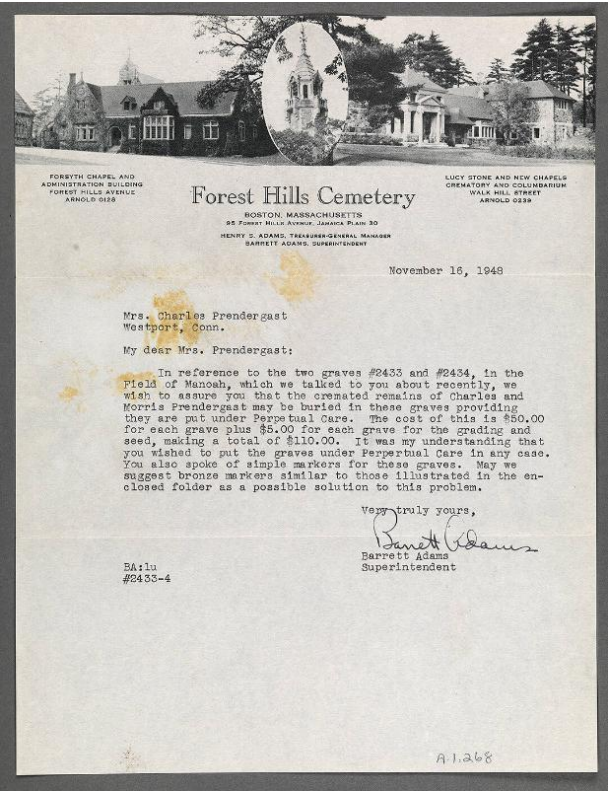 FORSYTH CHAPEL AND
ADMINISTRATION BUILDING
FOREST HILLS AVENUE
ARNOLD 0128
LUCY STONE AND NEW CHAPELS
CREMATORY AND COLUMBARIUM
WALK HILL STREET
ARNOLD 0239
Forest Hills Cemetery
BOSTON, MASSACHUSETTS
95 FOREST HILLS AVENUE, JAMAICA PLAIN 30
HENRY S. ADAMS, TREASURER-GENERAL MANAGER
BARRETT ADAMS, SUPERINTENDENT
November 16, 1948
Mrs. Charles Prendergast
Westport, Conn.
My dear Mrs. Prendergast:
In reference to the two graves #2433 and #2434, in the
Field of Manoah, which we talked to you about recently, we
wish to assure you that the cremated remains of Charles and
Morris Prendergast may be buried in these graves providing
they are put under Perpetual Care. The cost of this is $50.00
for each grave plus $5.00 for each grave for the grading and
seed, making a total of $110.00. It was my understanding that
you wished to put the graves under Perpertual Care in any case.
You also spoke of simple markers for these graves. May we
suggest bronze markers similar to those illustrated in the en-
closed folder as a possible solution to this problem.
Very truly yours,
Barrett Adams
Barrett Adams
Superintendent
BA:lu
#2433-4
A.1.268